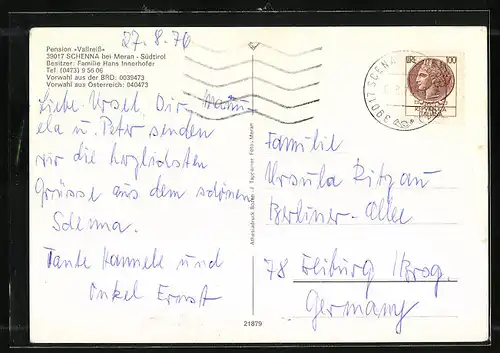 27.8.76
Pension «Vallreiß»
39017 SCHENNA bei Meran - Südtirol
Besitzer: Familie Hans Innerhofer
Tel. (0473) 9 56 06
Vorwahl aus der BRD: 0039473
Vorwahl aus Österreich: 040473
Liebe Ursel, Dir, Manu-
ela u. Peter senden
wir die herzlichsten
Grüsse aus dem schönen
Schenna.
Tante Hannele und
Onkel Ernst
21879
LIRE 100
ITALIANA
39017 SCENA
Familie
Ursula Ritzau
Berliner-Allee
78 Freiburg /Brsg.
Germany